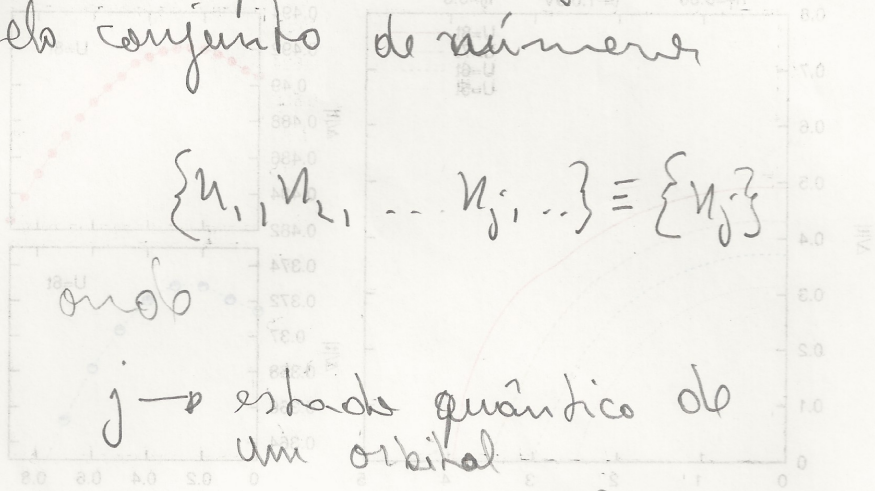 elo conjunto de números
{n₁, n₂, ... nⱼ, ..} ≡ {nⱼ}
onde
j → estado quântico de
um orbital